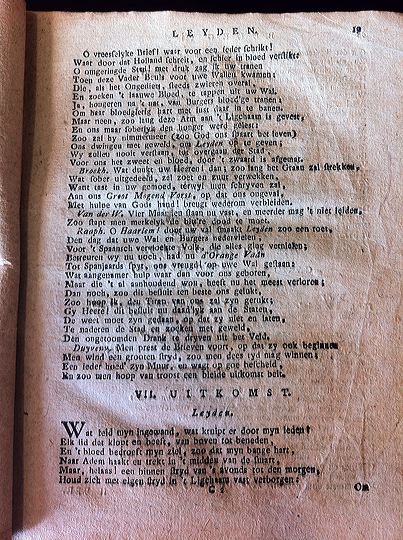 LEYDEN. 19
O vreesselyke Brief! waar voor een ieder schrikt!
Waar door dat Holland schreit, en schier in bloed verstikt!
O omgeringde Stad! met druk zag ik uw tranen
Toen deze Vader Beuls voor uwe Wallen kwamen:
Die, als het Ongedier, steeds zwieren overal,
En zoeken 't laauwe Bloed, te tappen uit uw Wal.
Ja, hongeren na 't nat, van Burgers bloed'ge tranen:
Om haar bloedgierig hart met lust daar in te banen.
Maar neen, zoo lang den Arm aan 't Ligchaam is gevest,
En ons maar soberlyk den honger werd gelest:
Zoo zal hy nimmermeer (zoo God ons spaart het leven)
Ons dwingen met geweld, om Leyden op te geven;
Wy zullen nooit verslaan, tot overgaaf der Stad,
Voor ons het zweet en bloed, door 't zwaard is afgemat.
Broekh. Wat dunkt uw Heeren! dan; zoo lang het Graan zal strekken,
Wat sober uitgedeeld, zal zoet en zuur verwekken.
Want tast in uw gemoed, terwyl men schryven zal,
Aan ons Groot Mogend Vorst, op dat ons ongeval,
Met hulpe van Gods hand! breugt wederom verblelden.
Van der W. Vier Maanden staan nu vast, en meerder mag 't niet leiden,
Zoo stapt men merkelyk de bleke dood te moet.
Raaph. O Haarlem! door uw val smaakt Leyden zoo een roet,
Den dag dat uwe Wal en Burgers nedervielen;
Voor 't Spaansch vervloekte Volk, die alles ging vernielen;
Bestreuren wy nu noch, had nu d'Orange Vaân
Tot Spanjaards spyt, ons vreugd' op uwe Wal gestaan:
Wat aangenamer hulp waar dan voor ons geboren,
Maar die 't al aanhoudend won, heeft nu het meest verloren;
Dan noch, zoo dit besluit en beste ons gelukt,
Zoo hoop ik, den Tiran van ons zal zyn gerukt;
Gy Heere! dit besluit nu daad'lyk aan de Staten,
De weet moet zyn gedaan, op dat zy niet en laten
Te naderen de Stad, en zoeken met geweld,
Den ongetoomden Drank te dryven uit het Veld.
Duyvenv. Men prest de Brieven voort, op dat zy ook beginnen
Men wind een grooten stryd, zoo men dees tyd mag winnen;
Een ieder hoed' zyn Muur, en wagt op goe bescheid,
En zoo men hoop van troost een bleide uitkomst beit.
VII. UITKOMST.
Leyden.
Wat feld myn ingewand, wat kruipt er door myn leden!
Elk lid dat klopt en beeft, van boven tot beneden,
En 't bloed bedroeft myn ziel, zoo dat myn bange hart,
Naar Adem haakt en trekt in 't midden van de smart,
Maar, helaas! een binnen stryd van 's avonds tot den morgen,
Houd zich met eigen stryd in 't Ligchaam vast verborgen:
C 2 Om